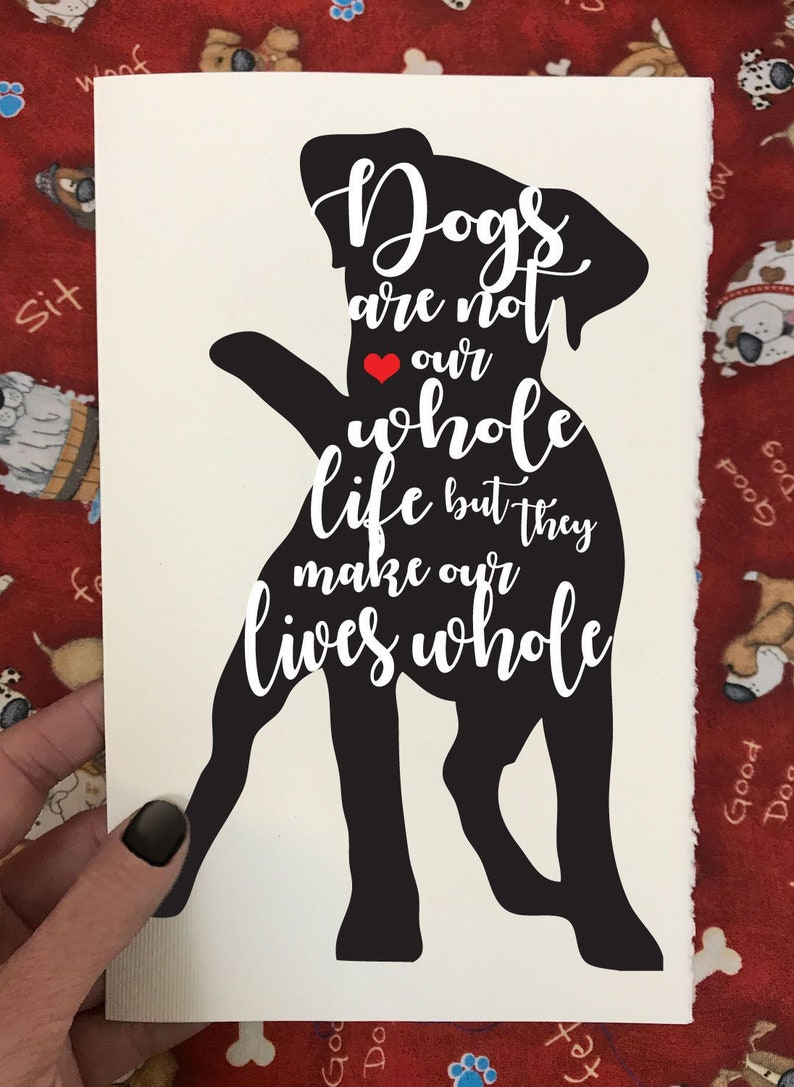 woof
Sit
Dogs
are not
our
whole
life but they
make our
lives whole
Good
Dog
Good
Dog
Good